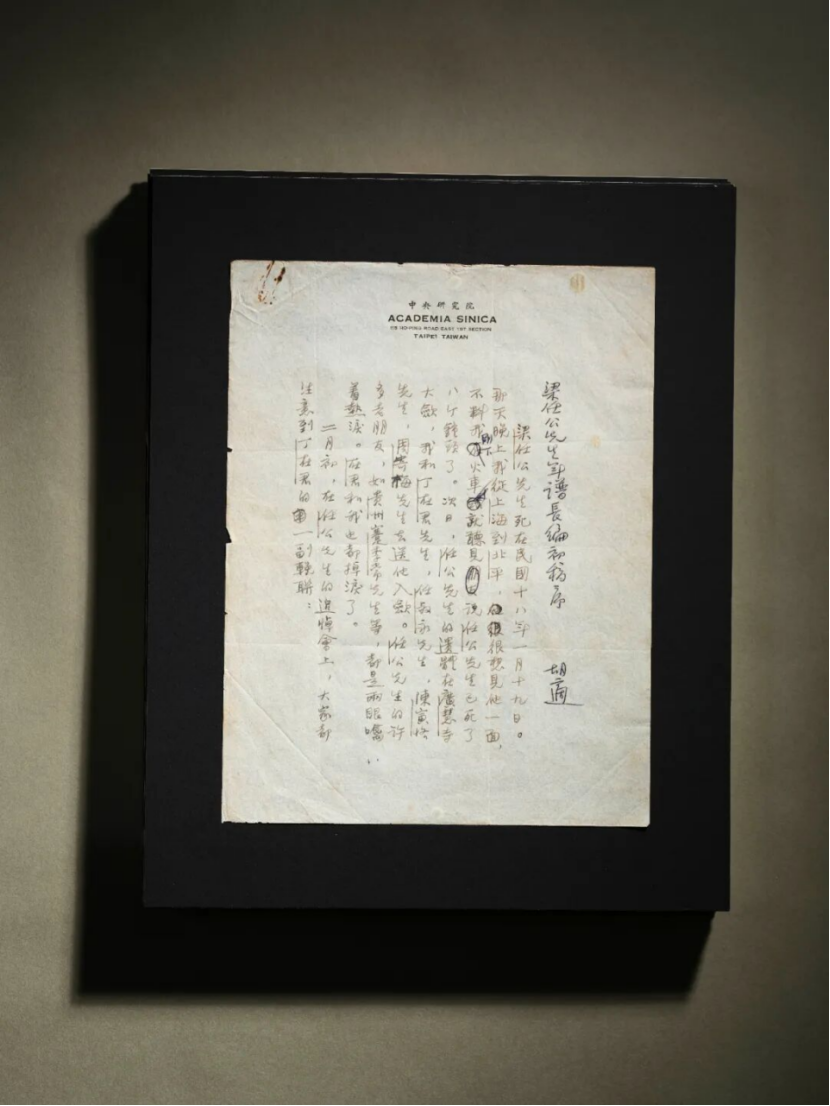 中央研究院
ACADEMIA SINICA
ROAD EAST 1ST SECTION
TAIPEI TAIWAN
梁任公先生年譜長編初稿序 胡適
梁任公先生死在民國十八年一月十九日。
那天晚上我從上海到北平,很想見他一面,
不料我剛下火車就聽見說任公先生已死了
八个鐘頭了。次日,任公先生的遺體在廣慧寺
大歛,我和丁在君先生,任叔永先生,陳寅恪
先生,周寄梅先生去送他入歛。任公先生的許
多老朋友,如貴州蹇季常先生等,都是兩眼噙
着熱淚。在君和我也都掉淚了。
二月初,在任公先生的追悼會上,大家都
注意到丁在君的一副輓聯: